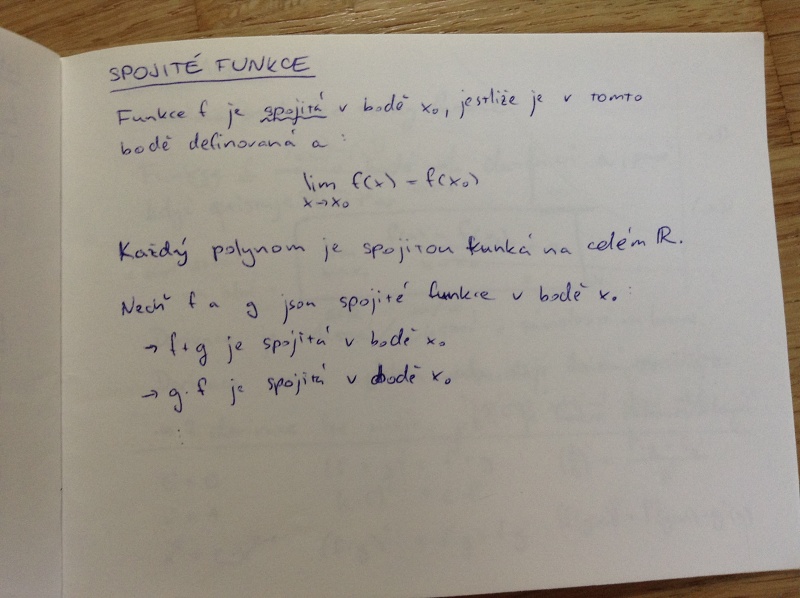 SPOJITÉ FUNKCE
Funkce f je spojitá v bodě x₀, jestliže je v tomto
bodě definovaná a :
lim f(x) = f(x₀)
x→x₀
Každý polynom je spojitou funká na celém ℝ.
Nechť f a g json spojité funkce v bodě x₀ :
→ f+g je spojitá v bodě x₀
→ g·f je spojitá v bodě x₀
⋮